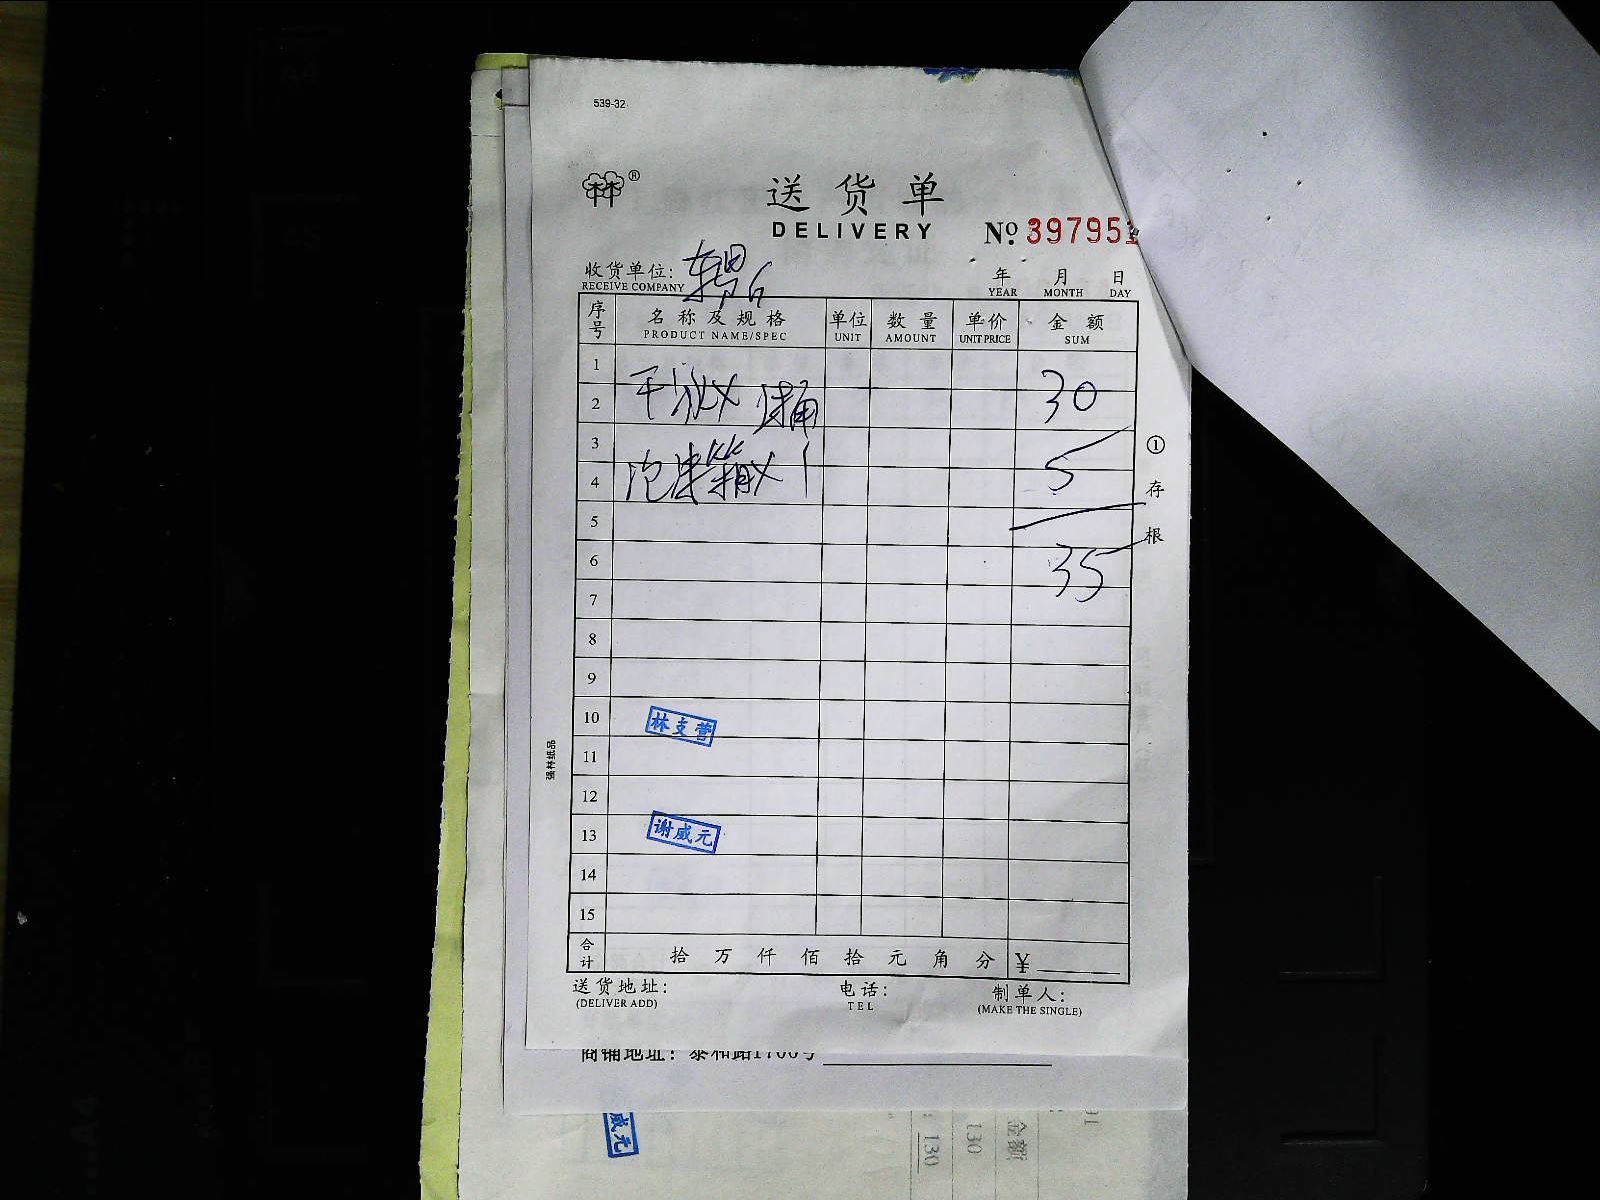 539-32
林林®
送货单
DELIVERY
№ 397951
收货单位:
RECEIVE COMPANY
年 月 日
YEAR MONTH DAY
序号 名称及规格 单位 数量 单价 金额
PRODUCT NAME/SPEC UNIT AMOUNT UNIT PRICE SUM
1
2 干冰X 1桶 30
3
4 泡沫箱X 1 5
5
6 35
7
8
9
10 林支营
11
12
13 谢威元
14
15
合计 拾 万 仟 佰 拾 元 角 分 ¥
送货地址: 电话: 制单人:
(DELIVER ADD) TEL (MAKE THE SINGLE)
①存根
强林纸品
商铺地址: 泰和路1700号
威元
金额
130
130